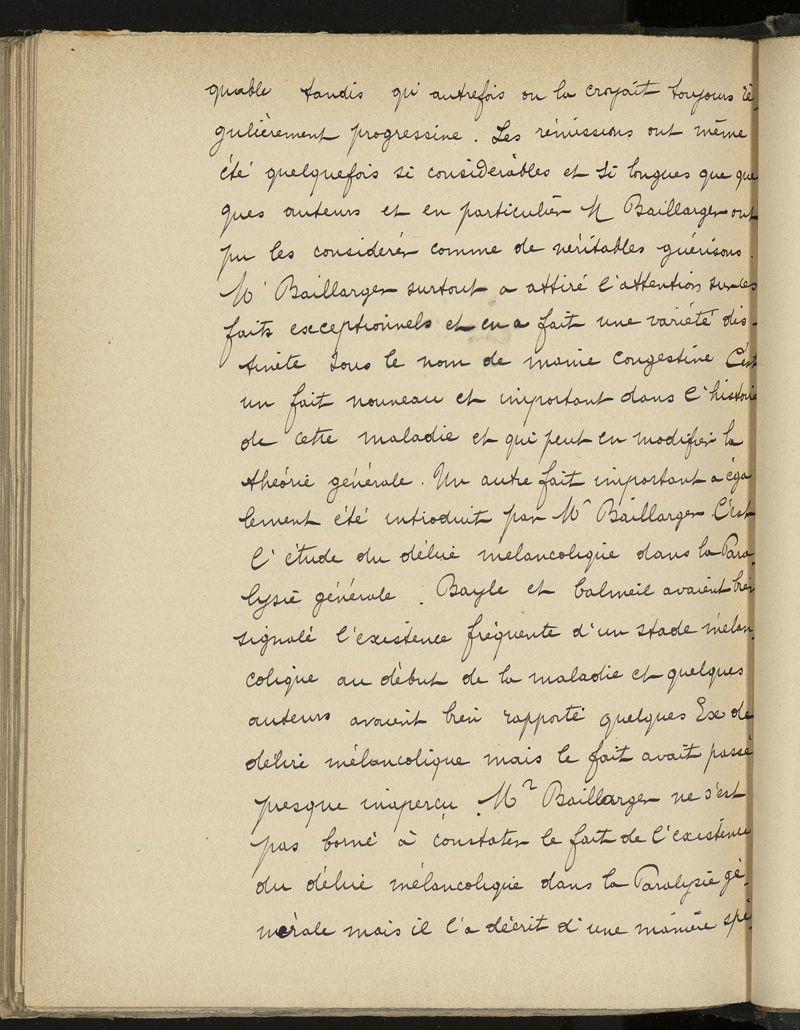 quable tandis qu'autrefois on la croyait toujours ré-
gulièrement progressive. Les rémissions ont même
été quelquefois si considérables et si longues que quel
ques auteurs et en particulier M Baillarger ont
pu les considérer comme de véritables guérisons.
Mr Baillarger surtout a attiré l'attention sur ces
faits exceptionnels et en a fait une variété dis-
tincte sous le nom de manie congestive C'est
un fait nouveau et important dans l'histoire
de cette maladie et qui peut en modifier la
théorie générale. Un autre fait important a éga
lement été introduit par Mr Baillarger C'est
l'étude du délire mélancolique dans la Para-
lysie générale. Bayle et Calmeil avaient bien
signalé l'existence fréquente d'un stade mélan-
colique au début de la maladie et quelques
auteurs avaient bien rapporté quelques Ex de
délire mélancolique mais le fait avait passé
presque inaperçu. Mr Baillarger ne s'est
pas borné à constater le fait de l'existence
du délire mélancolique dans la Paralysie gé-
nérale mais il l'a décrit d'une manière spé-